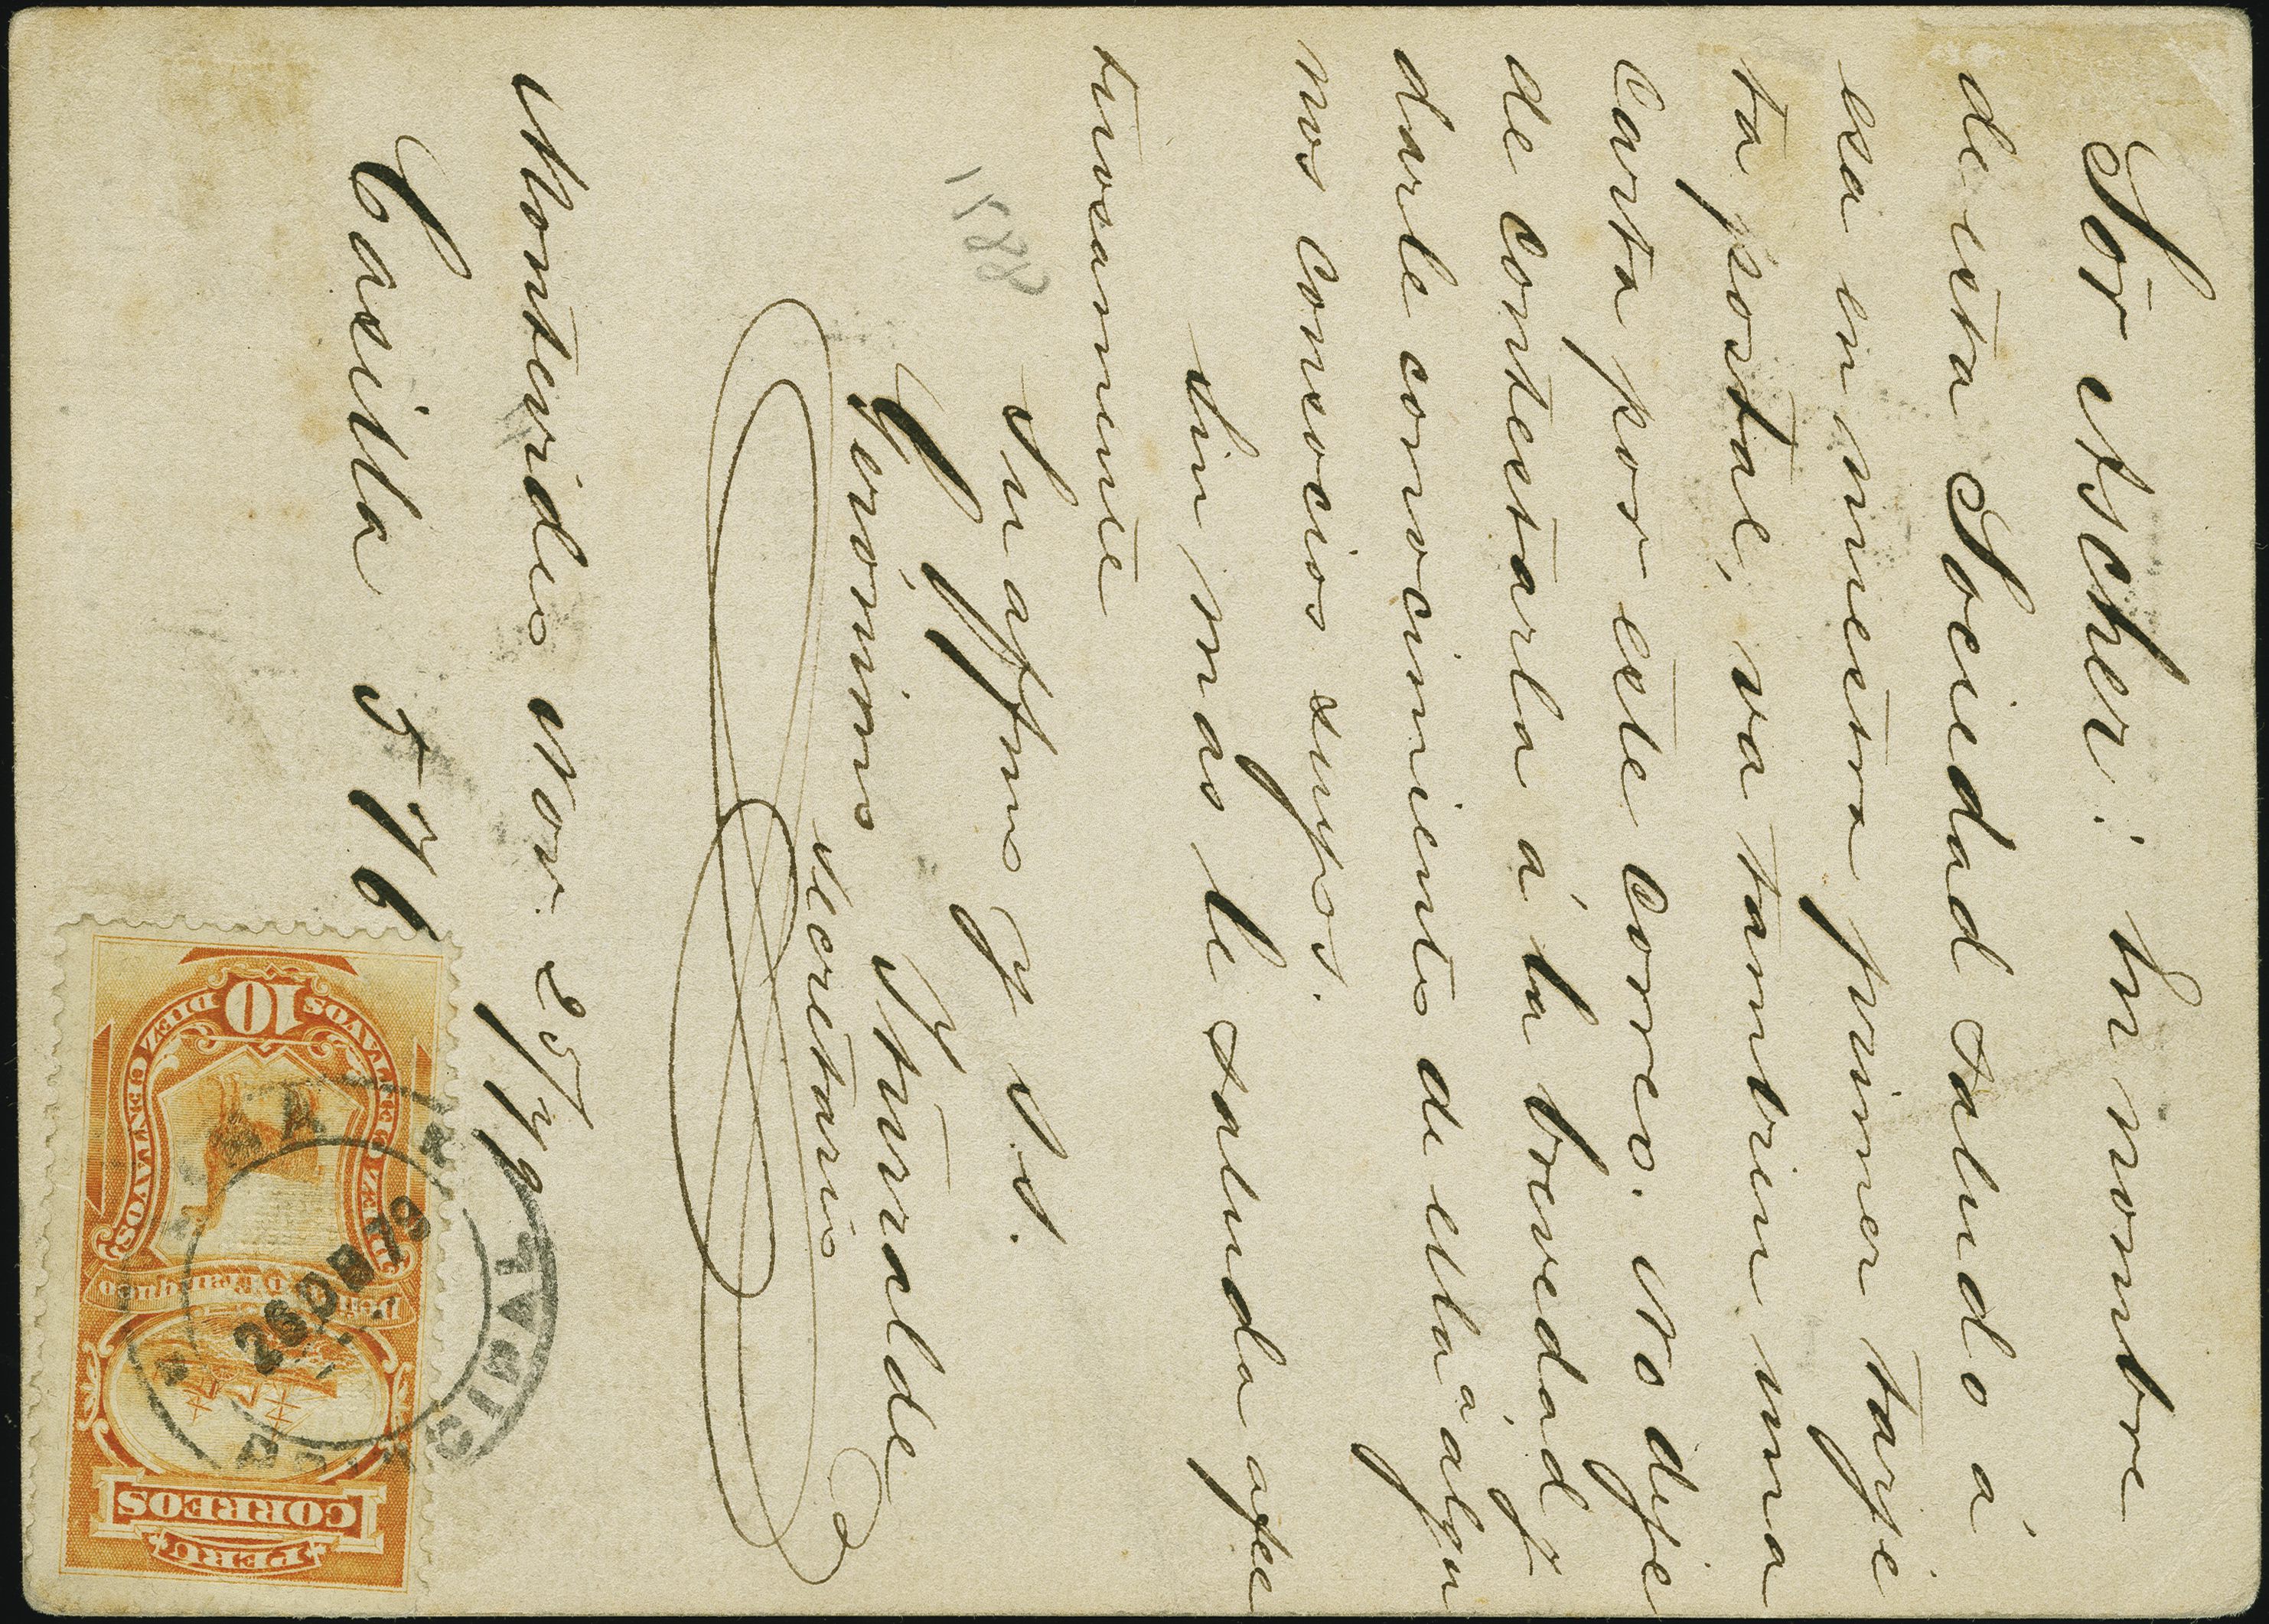 Sor Ascher: En nombre
de esta Sociedad saludo á
esa en nuestra primer tarje
ta postal, va tambien una
carta por este correo. No deje
de contestarla á la brevedad y
darle conocimiento de ella á algu
nos consocios suyos.
Sin mas le saluda afec
tuosamente
Su affmo y S. S.
Gerónimo Yturralde
Secretario
Montevideo Nov 25/79
Casilla 576
PERU
CORREOS
10
DIEZ CENTAVOS
DIEZ CENTAVOS
CIPAL
26 DE 79